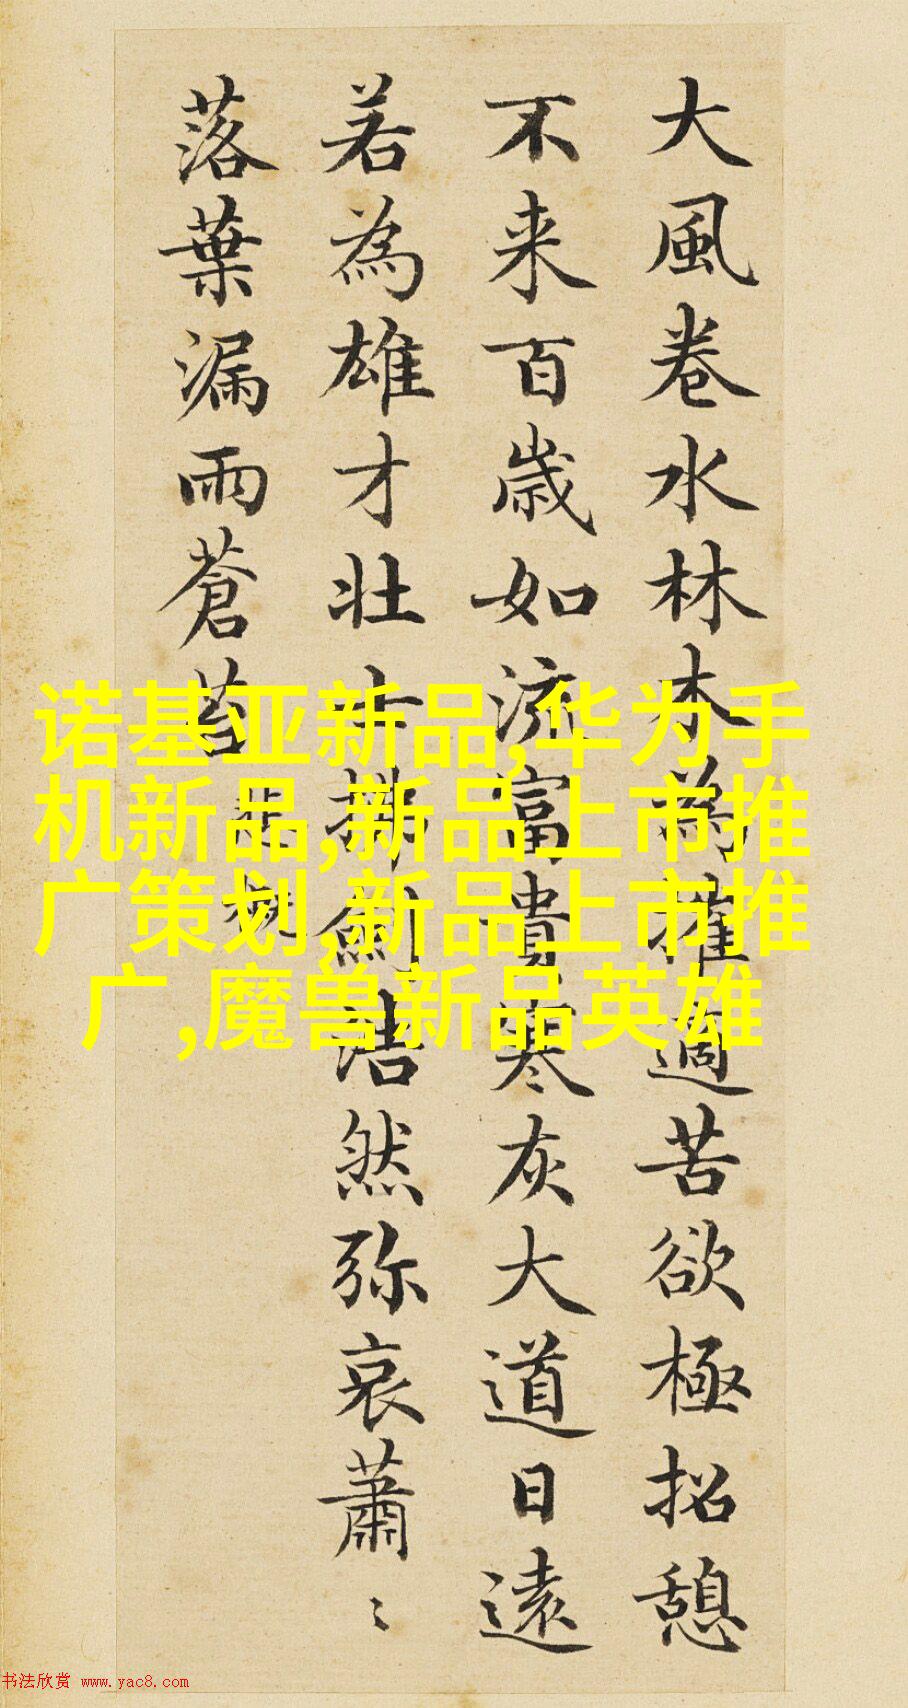 大風卷水林木為摧適苦欲極招憩
不来百歲如流富貴寒灰大道日遠
若為雄才壯士劍浩然弥哀蕭〻
落葉漏雨蒼苔
悲概
诺基亚新品,华为手
机新品,新品上市推
广策划,新品上市推
广,魔兽新品英雄
书法欣赏 www.yac8.com